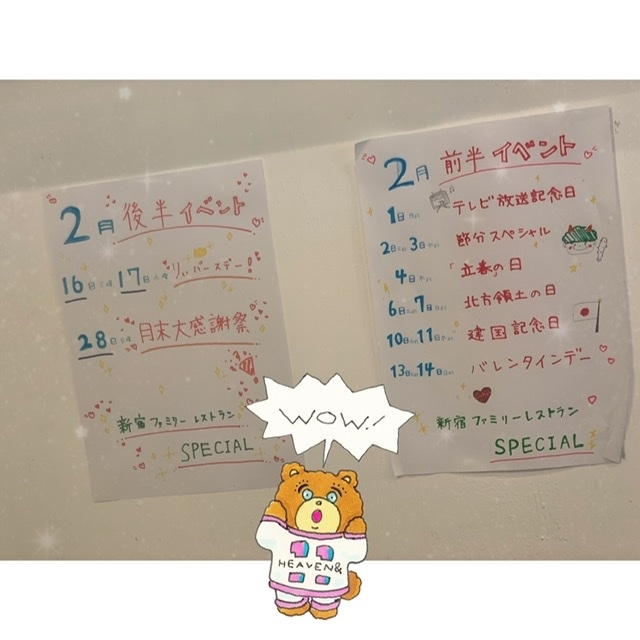 2月 後半イベント
16日 17日 りぃバースデー!
28日 月末大感謝祭
新宿ファミリーレストラン
SPECIAL
2月 前半イベント
1日 テレビ放送記念日
2日 3日 節分スペシャル
4日 立春の日
6日 7日 北方領土の日
10日 11日 建国記念日
13日 14日 バレンタインデー
新宿ファミリーレストラン
SPECIAL
WOW!
HEAVEN&